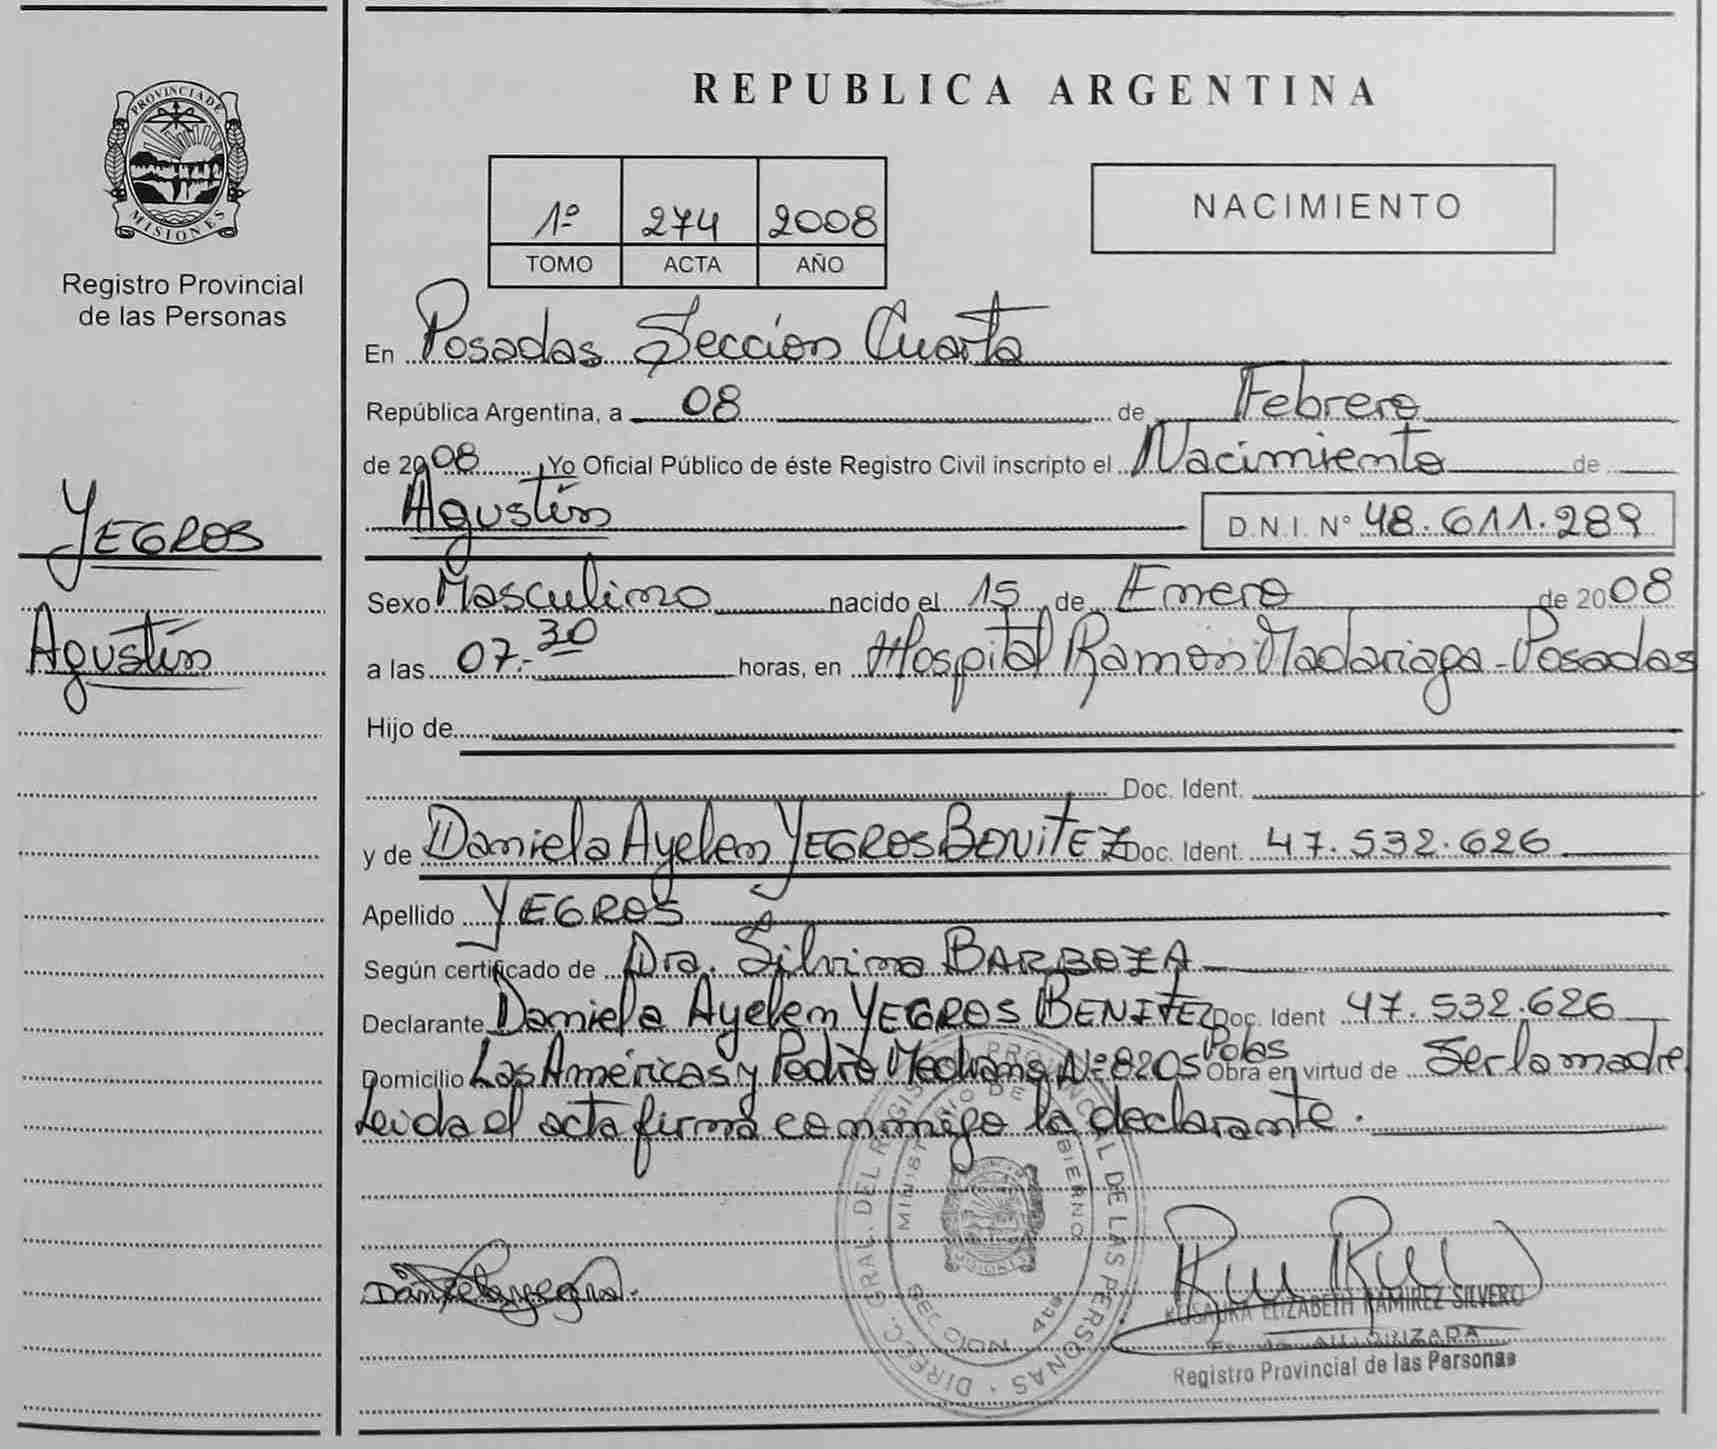 PROVINCIA DE
MISIONES
Registro Provincial
de las Personas
YEGROS
Agustín
REPUBLICA ARGENTINA
1º 274 2008
TOMO ACTA AÑO
NACIMIENTO
En Posadas Sección Cuarta
República Argentina, a 08 de Febrero
de 2008 Yo Oficial Público de éste Registro Civil inscripto el Nacimiento de
Agustín D.N.I. Nº 48.611.289
Sexo Masculino nacido el 15 de Enero de 2008
a las 07.30 horas, en Hospital Ramón Madariaga - Posadas
Hijo de
Doc. Ident.
y de Daniela Ayelen YEGROS BENITEZ Doc. Ident. 47.532.626
Apellido YEGROS
Según certificado de Dra. Silvina BARBOZA
Declarante Daniela Ayelen YEGROS BENITEZ Doc. Ident 47.532.626
Domicilio Las Américas y Pedro Medrano Nº 8205 Pdas Obra en virtud de Ser la madre
Leida el acta firma conmigo la declarante.
DIREC. GRAL. DEL REGISTRO PROVINCIAL DE LAS PERSONAS
MINISTERIO DE GOBIERNO
SECCION 4ta
MISIONES
Daniela yegros.
ROSAURA ELIZABETH RAMIREZ SILVERO
AUTORIZADA
Registro Provincial de las Personas